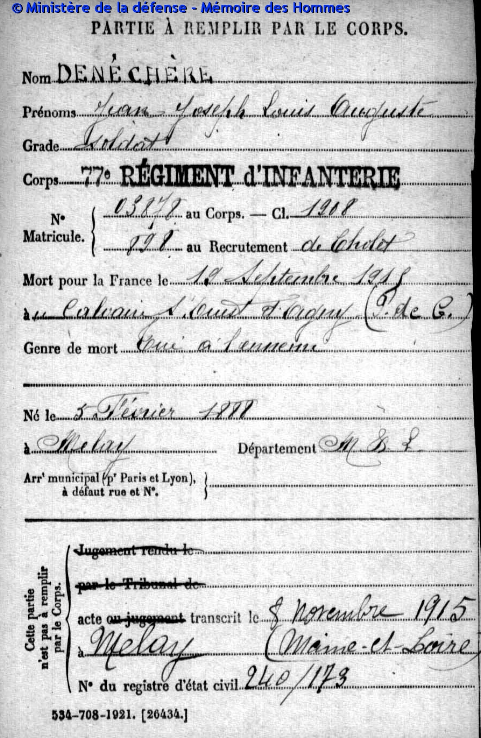 © Ministère de la défense - Mémoire des Hommes
PARTIE À REMPLIR PAR LE CORPS.
Nom DENÉCHÈRE
Prénoms Jean Joseph Louis Auguste
Grade Soldat
Corps 77e RÉGIMENT d'INFANTERIE
N° Matricule. { 03878 au Corps. — Cl. 1908
898 au Recrutement de Cholet
Mort pour la France le 19 Septembre 1915
à au Calvaire d'Agny (P. de C.)
Genre de mort Tué à l'ennemi
Né le 5 Février 1888
à Melay Département M & L
Arrt municipal (pr Paris et Lyon), à défaut rue et N°. }
Cette partie n'est pas à remplir par le Corps.
Jugement rendu le
par le Tribunal de
acte ou jugement transcrit le 8 novembre 1915
à Melay (Maine-et-Loire)
N° du registre d'état civil 240/173
534-708-1921. [26434.]